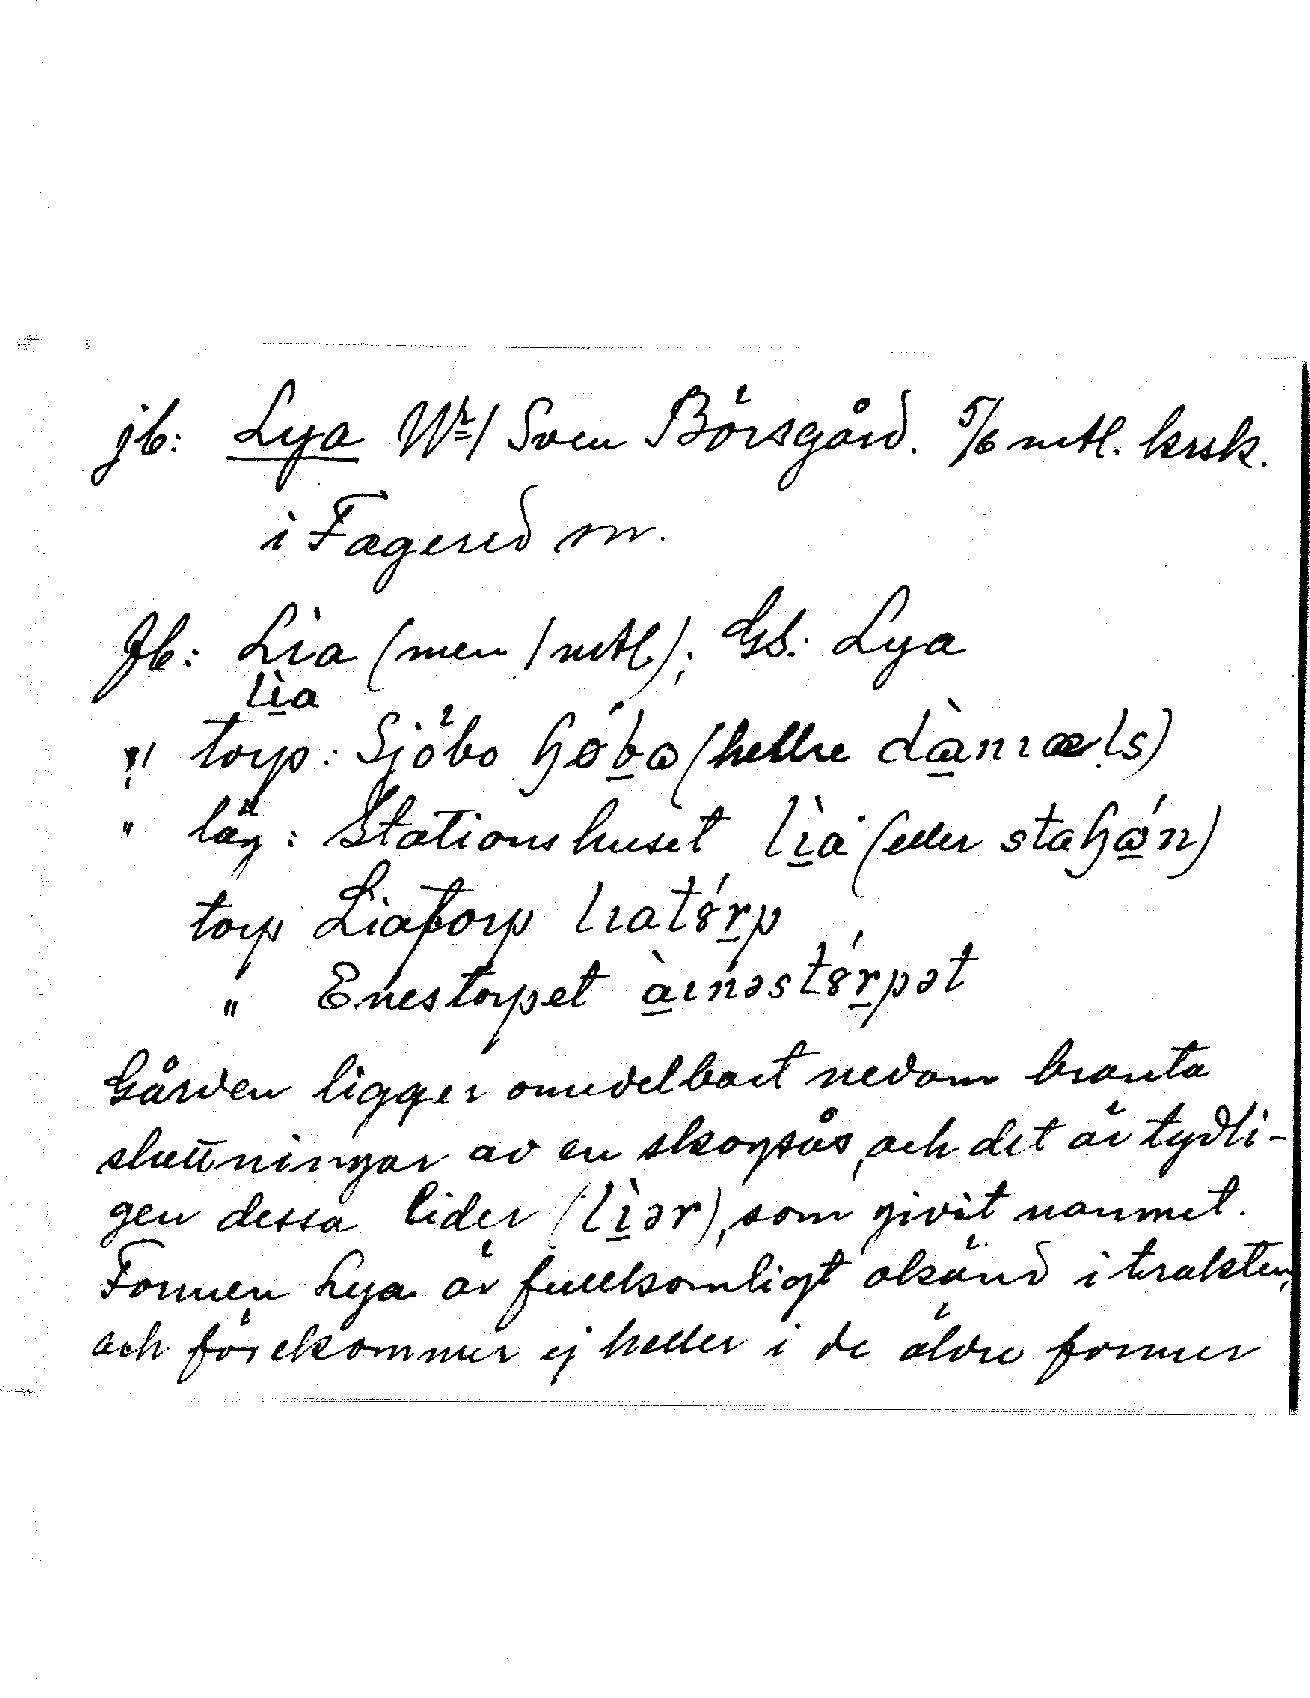 jb: Lya Nr 1 Sven Börsgård. 5/6 mtl. krsk.
i Fagered sn.
Jb: Lia (men 1 mtl); Gs: Lya
lìa
" torp: Sjöbo ɧǿba (heller dànıæls)
" läg: Stationshuset lìa (eller staɧǿn)
torp Liatorp lıatɞ́rp
" Enestorpet àınəstɞ́rpət
Gården ligger omedelbart nedom branta
sluttningar av en skogsås, och det är tydli-
gen dessa lider (lìər), som givit namnet.
Formen Lya är fullkomligt okänd i trakten,
och förekommer ej heller i de äldre former